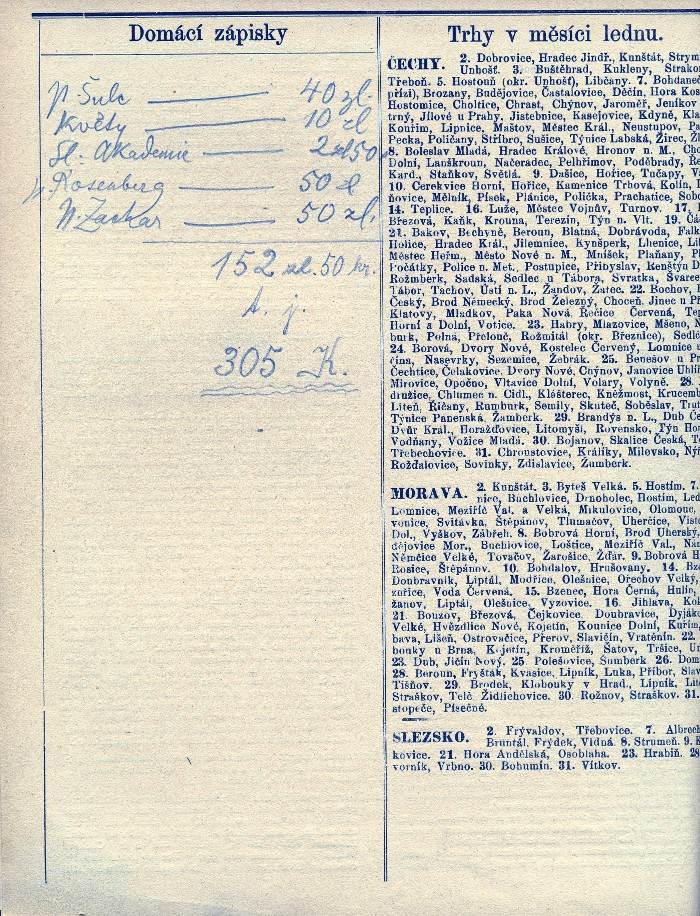 Domácí zápisky
p. Šulc — 40 zl.
Květy — 10 zl
Sl. Akademie — 2 zl 50
p. Rosenberg — 50 zl
N. Zachar — 50 zl.
152 zl. 50 kr.
t. j.
305 K.
Trhy v měsíci lednu.
ČECHY. 2. Dobrovice, Hradec Jindř., Kunštát, Strym
Unhošť. 3. Buštěhrad, Kukleny, Strakon
Třeboň. 5. Hostouň (okr. Unhošť), Libčany. 7. Bohdaneč
přízi), Brozany, Budějovice, Častalovice, Děčín, Hora Kos
Hostomice, Choltice, Chrast, Chýnov, Jaroměř, Jeníkov
trný, Jílové u Prahy, Jistebnice, Kasejovice, Kdyně, Kla
Kouřim, Lipnice, Maštov, Městec Král., Neustupov, Pa
Pecka, Poličany, Stříbro, Sušice, Týniec Labská, Žirec, Žl
8. Boleslav Mladá, Hradec Králové, Hronov n. M., Cho
Dolní, Lanškroun, Načeradec, Pelhřimov, Poděbrady, Re
Kard., Staňkov, Světlá. 9. Dašice, Hořice, Tučapy, Va
10. Cerekvice Horní, Hořice, Kamenice Trhová, Kolín, L
ňovice, Mělník, Písek, Plánice, Polička, Prachatice, Sobo
14. Teplice. 16. Luže, Městec Vojnův, Turnov. 17.
Březová, Kaňk, Krouna, Terezín, Týn n. Vlt. 19. Čá
21. Bakov, Bechyně, Beroun, Blatná, Dobrávoda, Falk
Holice, Hradec Král., Jilemnice, Kynšperk, Lhenice, Li
Městec Heřm., Město Nové n. M., Mníšek, Plaňany, Pl
Počátky, Police n. Met., Postupice, Přibyslav, Renštýn D
Rožmberk, Sadská, Sedlec u Tábora, Svratka, Švarce
Tábor, Tachov, Ústí n. L., Žandov, Žatec. 22. Bochov, B
Český, Brod Německý, Brod Železný, Choceň, Jinec u Př
Klatovy, Mladkov, Paka Nová Řečice Červená, Tep
Horní a Dolní, Votice. 23. Habry, Mlazovice, Mšeno, N
burk, Polná, Přelouč, Rožmitál (okr. Březnice), Sedlč
24. Borová, Dvory Nové, Kostelec Červený, Lomnice u
čina, Nasevrky, Sezemice, Žebrák. 25. Benešov u Pr
Čechtice, Čelakovice, Dvory Nové, Chýnov, Janovice Uhlíř
Mirovice, Opočno, Vltavice Dolní, Volary, Volyně. 28.
družice, Chlumec n. Cidl., Klášterec, Kněžmost, Krucemb
Liteň, Říčany, Rumburk, Semily, Skuteč, Soběslav, Trut
Týnice Panenská, Žamberk. 29. Brandýs n. L., Dub Če
Dvůr Král., Horažďovice, Litomyšl, Rovensko, Týn Hor
Vodňany, Vožice Mladá. 30. Bojanov, Skalice Česká, T
Třebechovice. 31. Chroustovice, Králíky, Milevsko, Nýř
Rožďalovice, Sovinky, Zdislavice, Žumberk.
MORAVA. 2. Kunštát. 3. Byteš Velká. 5. Hostim. 7.
nice, Buchlovice, Drnoholec, Hostim, Led
Lomnice, Meziříč Val. a Velká, Mikulovice, Olomouc,
vonice, Svitávka, Štěpánov, Tlumačov, Uherčice, Vist
Dol., Vyškov, Zábřeh. 8. Bobrová Horní, Brod Uherský,
dějovice Mor., Buchlovice, Loštice, Meziříč Val., Ná
Němčice Velké, Tovačov, Žarošice, Žďár. 9. Bobrová H
Rosice, Štěpánov. 10. Bohdalov, Hrušovany. 14. Bze
Doubravník, Liptál, Modřice, Olešnice, Ořechov Velký,
zořice, Voda Červená. 15. Bzenec, Hora Černá, Hulín,
žanov, Liptál, Olešnice, Vyzovice. 16. Jihlava, Kok
21. Bouzov, Březová, Čejkovice, Doubravice, Dyják
Velké, Hvězdlice Nové, Kojetín, Kounice Dolní, Kuřim,
bava, Líšeň, Ostrovačice, Přerov, Slavičín, Vratěnín. 22.
bouky u Brna, Kojetín, Kroměříž, Šatov, Tršice, Un
23. Dub, Jičín Nový. 25. Polešovice, Šumberk 26. Dom
28. Beroun, Fryšták, Kvasice, Lipník, Luka, Příbor, Slav
Tišňov. 29. Brodek, Klobouky v Hrad., Lipník, Lit
Straškov, Telč, Židlichovice. 30. Rožnov, Straškov. 31.
stopeče, Písečné.
SLEZSKO. 2. Frývaldov, Třebovice. 7. Albrech
Bruntál, Frýdek, Vidná. 8. Strumeň. 9. K
kovice. 21. Hora Andělská, Osoblaha. 23. Hrabíň. 28
vorník, Vrbno. 30. Bohumín. 31. Vítkov.